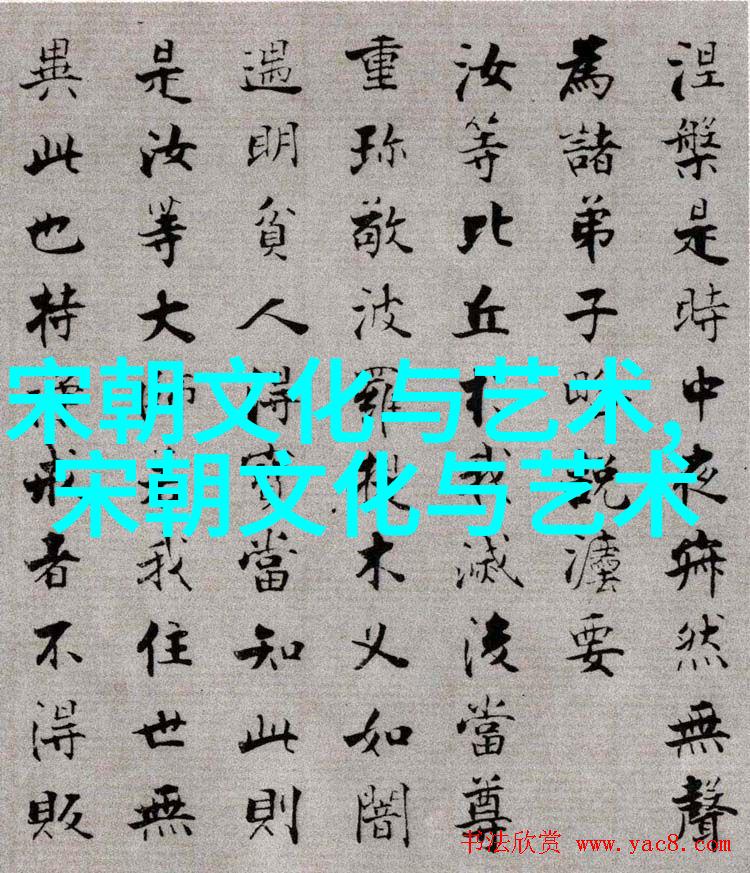 涅槃是時中夜寂然無聲
為諸弟子略說灋要
汝等比丘於我滅後當尊
重珍敬波羅提木叉如闇
遇明貧人得寶當知此則
是汝等大師我住世無
異此也持戒者不得販
宋朝文化与艺术,
宋朝文化与艺术
书法欣赏 www.yac8.com